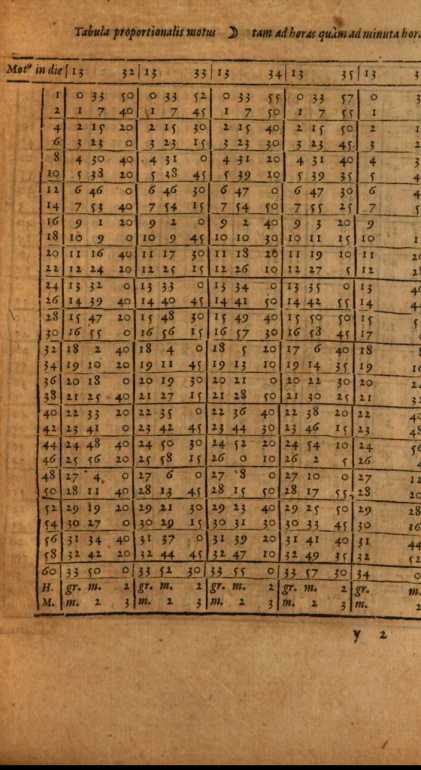 Tabula proportionalis motus ☽ tam ad horas quàm ad minuta hora
Mot⁹ in die 13 32 13 33 13 34 13 35 13 3
1 0 33 50 0 33 52 0 33 55 0 33 57 0
2 1 7 40 1 7 45 1 7 50 1 7 55 1
4 2 15 20 2 15 30 2 15 40 2 15 50 2
6 3 23 0 3 23 15 3 23 30 3 23 45 3
8 4 30 40 4 31 0 4 31 20 4 31 40 4
10 5 38 20 5 38 45 5 39 10 5 39 35 5
12 6 46 0 6 46 30 6 47 0 6 47 30 6
14 7 53 40 7 54 15 7 54 50 7 55 25 7
16 9 1 20 9 2 0 9 2 40 9 3 20 9
18 10 9 0 10 9 45 10 10 30 10 11 15 10
20 11 16 40 11 17 30 11 18 20 11 19 10 11
22 12 24 20 12 25 15 12 26 10 12 27 5 12
24 13 32 0 13 33 0 13 34 0 13 35 0 13
26 14 39 40 14 40 45 14 41 50 14 42 55 14
28 15 47 20 15 48 30 15 49 40 15 50 50 15
30 16 55 0 16 56 15 16 57 30 16 58 45 17
32 18 2 40 18 4 0 18 5 20 17 6 40 18
34 19 10 20 19 11 45 19 13 10 19 14 35 19
36 20 18 0 20 19 30 20 21 0 20 22 30 20
38 21 25 40 21 27 15 21 28 50 21 30 25 21
40 22 33 20 22 35 0 22 36 40 22 38 20 22
42 23 41 0 23 42 45 23 44 30 23 46 15 23
44 24 48 40 24 50 30 24 52 20 24 54 10 24
46 25 56 20 25 58 15 26 0 10 26 2 5 26
48 27 4 0 27 6 0 27 8 0 27 10 0 27
50 28 11 40 28 13 45 28 15 50 28 17 55 28
52 29 19 20 29 21 30 29 23 40 29 25 50 29
54 30 27 0 30 29 15 30 31 30 30 33 45 30
56 31 34 40 31 37 0 31 39 20 31 41 40 31
58 32 42 20 32 44 45 32 47 10 32 49 35 32
60 33 50 0 33 52 30 33 55 0 33 57 30 34 0
H. gr. m. 2 gr. m. 2 gr. m. 2 gr. m. 2 gr. m.
M. m. 2 3 m. 2 3 m. 2 3 m. 2 3 m. 2
y 2